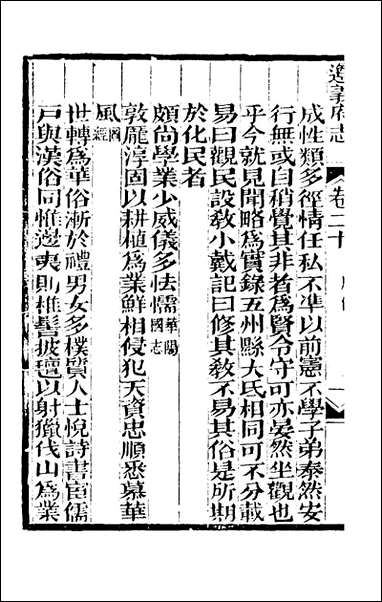 遵義府志 卷二十
成性類多徑情任私不準以前憲不學子弟泰然安
行無或自稍覺其非者爲賢令守可亦晏然坐觀也
乎今就見聞略爲實錄五州縣大氐相同可不分載
易曰觀民設敎小戴記曰修其敎不易其俗是所期
於化民者
頗尚學業少威儀多怯懦華陽國志
敦龎淳固以耕植爲業鮮相侵犯天資忠順悉慕華
風圖經
世轉爲華俗漸於禮男女多樸質人士悅詩書宦儒
戶與漢俗同惟邊夷則椎髻披氊以射獵伐山爲業